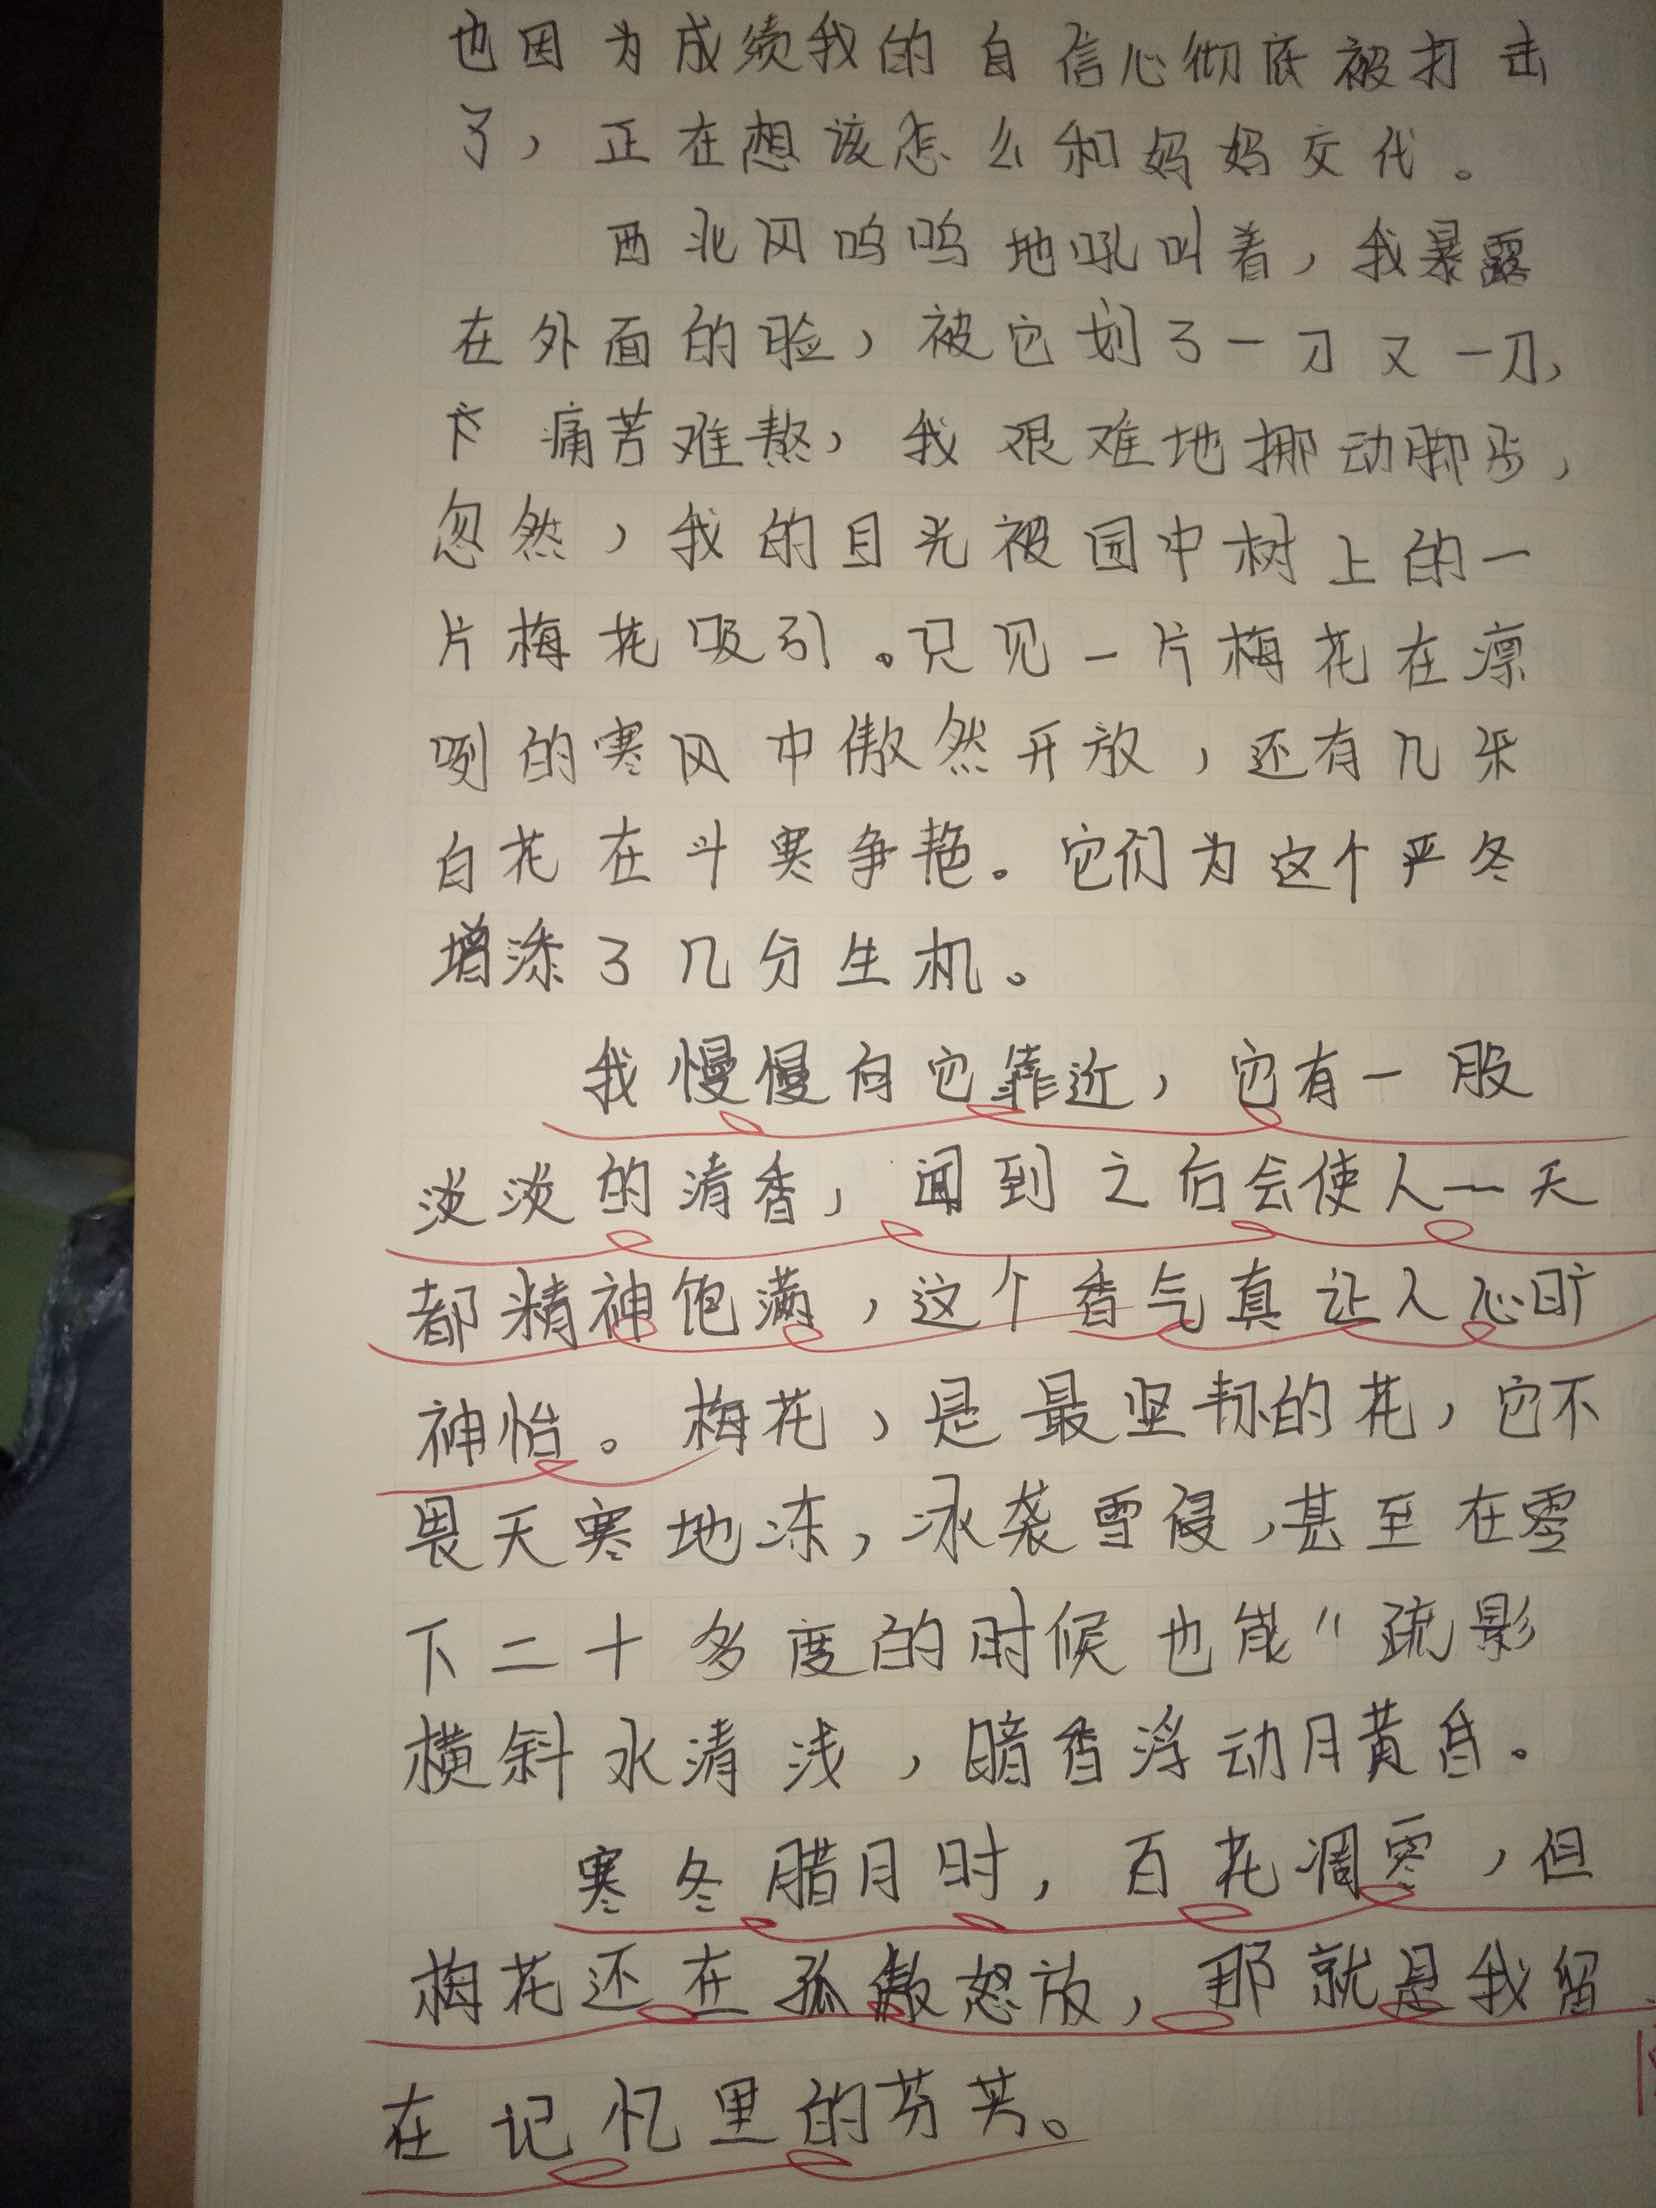 也因为成绩我的自信心彻底被打击
了，正在想该怎么和妈妈交代。
西北风呜呜地吼叫着，我暴露
在外面的脸，被它划了一刀又一刀，
痛苦难熬，我艰难地挪动脚步，
忽然，我的目光被园中树上的一
片梅花吸引。只见一片梅花在凛
咧的寒风中傲然开放，还有几朵
白花在斗寒争艳。它们为这个严冬
增添了几分生机。
我慢慢向它靠近，它有一股
淡淡的清香，闻到之后会使人一天
都精神饱满，这个香气真让人心旷
神怡。梅花，是最坚韧的花，它不
畏天寒地冻，冰袭雪侵，甚至在零
下二十多度的时候也能“疏影
横斜水清浅，暗香浮动月黄昏。
寒冬腊月时，百花凋零，但
梅花还在孤傲怒放，那就是我留
在记忆里的芬芳。